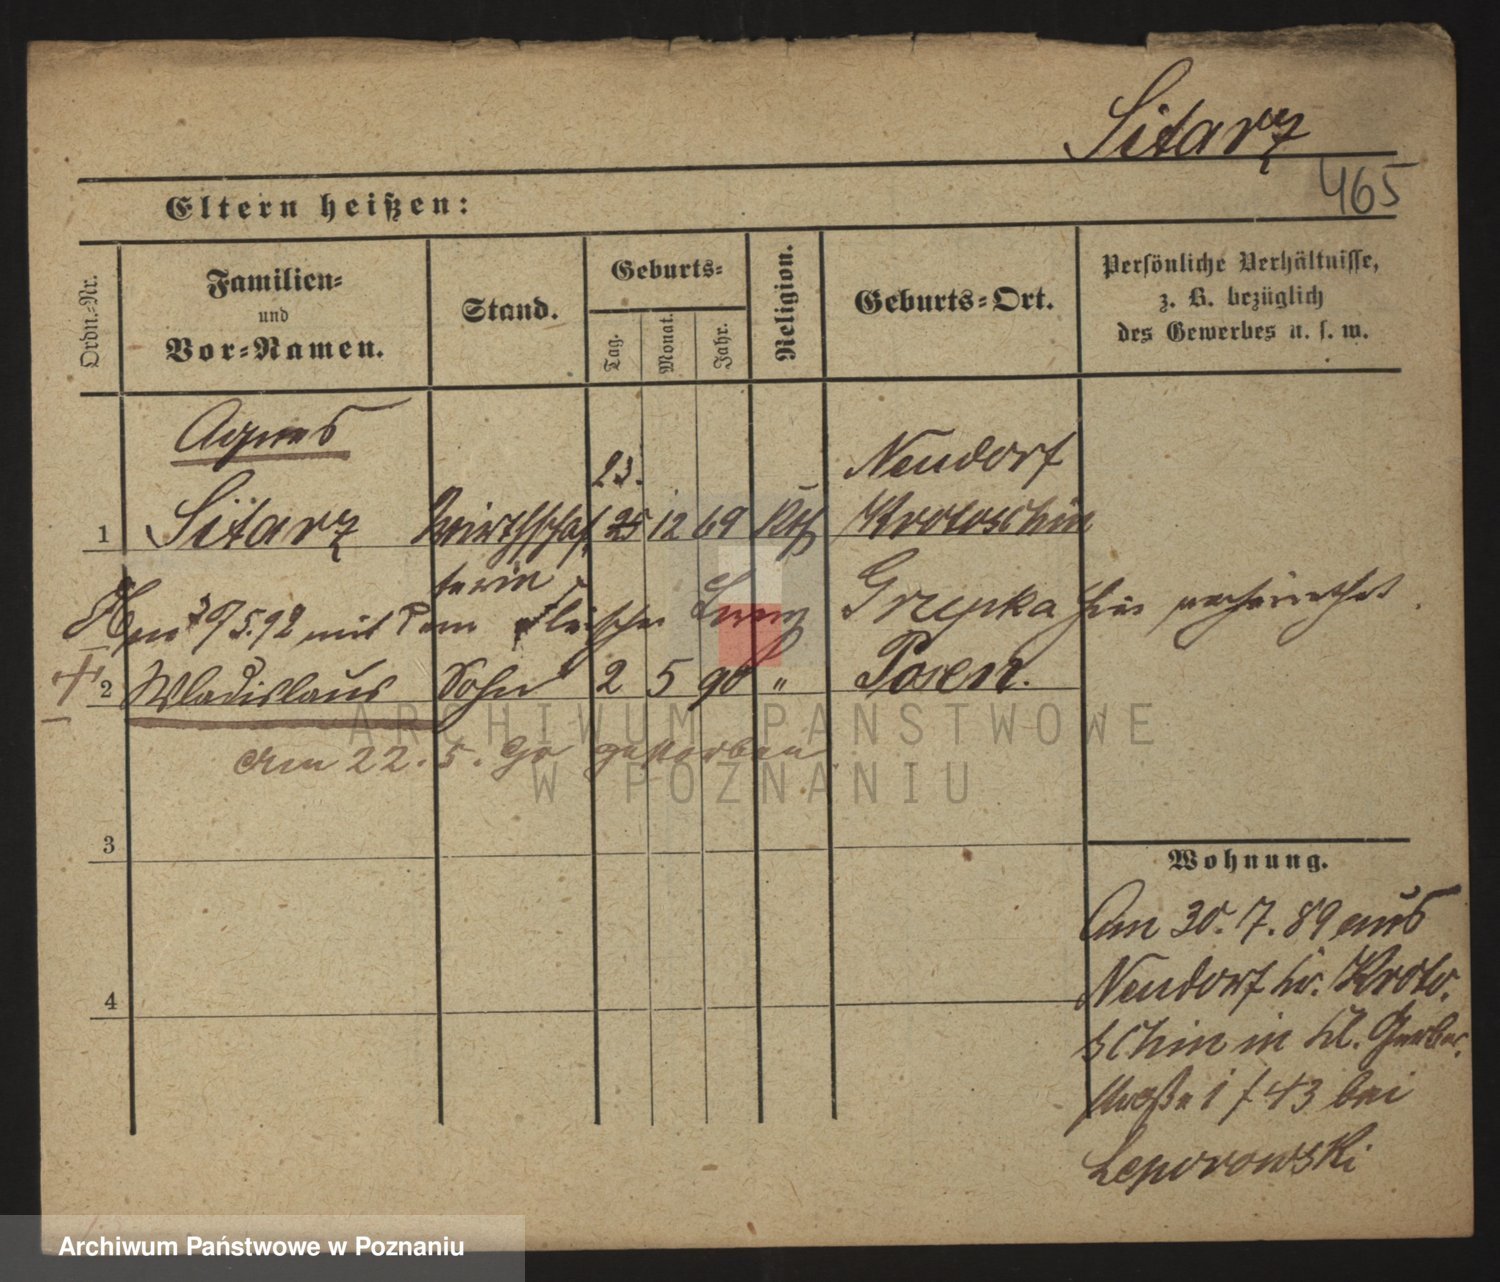 Sitarz
465
Eltern heißen:
Ordn.-Nr.
Familien-
und
Vor-Namen.
Stand.
Geburts-
Tag.
Monat.
Jahr.
Religion.
Geburts-Ort.
Persönliche Verhältnisse,
z. B. bezüglich
des Gewerbes u. s. w.
Agnes
23.
Neudorf
1 Sitarz Wirthschaf 25 12 69 Kth Krotoschin
terin
5.92 mit dem Fleischer Grzepka hier verheirathet.
2 Wladislaus Sohn 2 5 90 " Posen.
Am 22. 5. 90 gestorben
3
4
Wohnung.
Am 30. 7. 89 aus
Neudorf Kr. Kroto.
schin in Kl. Gerber.
straße 1 f 43 bei
Leporowski
ARCHIWUM PAŃSTWOWE
W POZNANIU
Archiwum Państwowe w Poznaniu